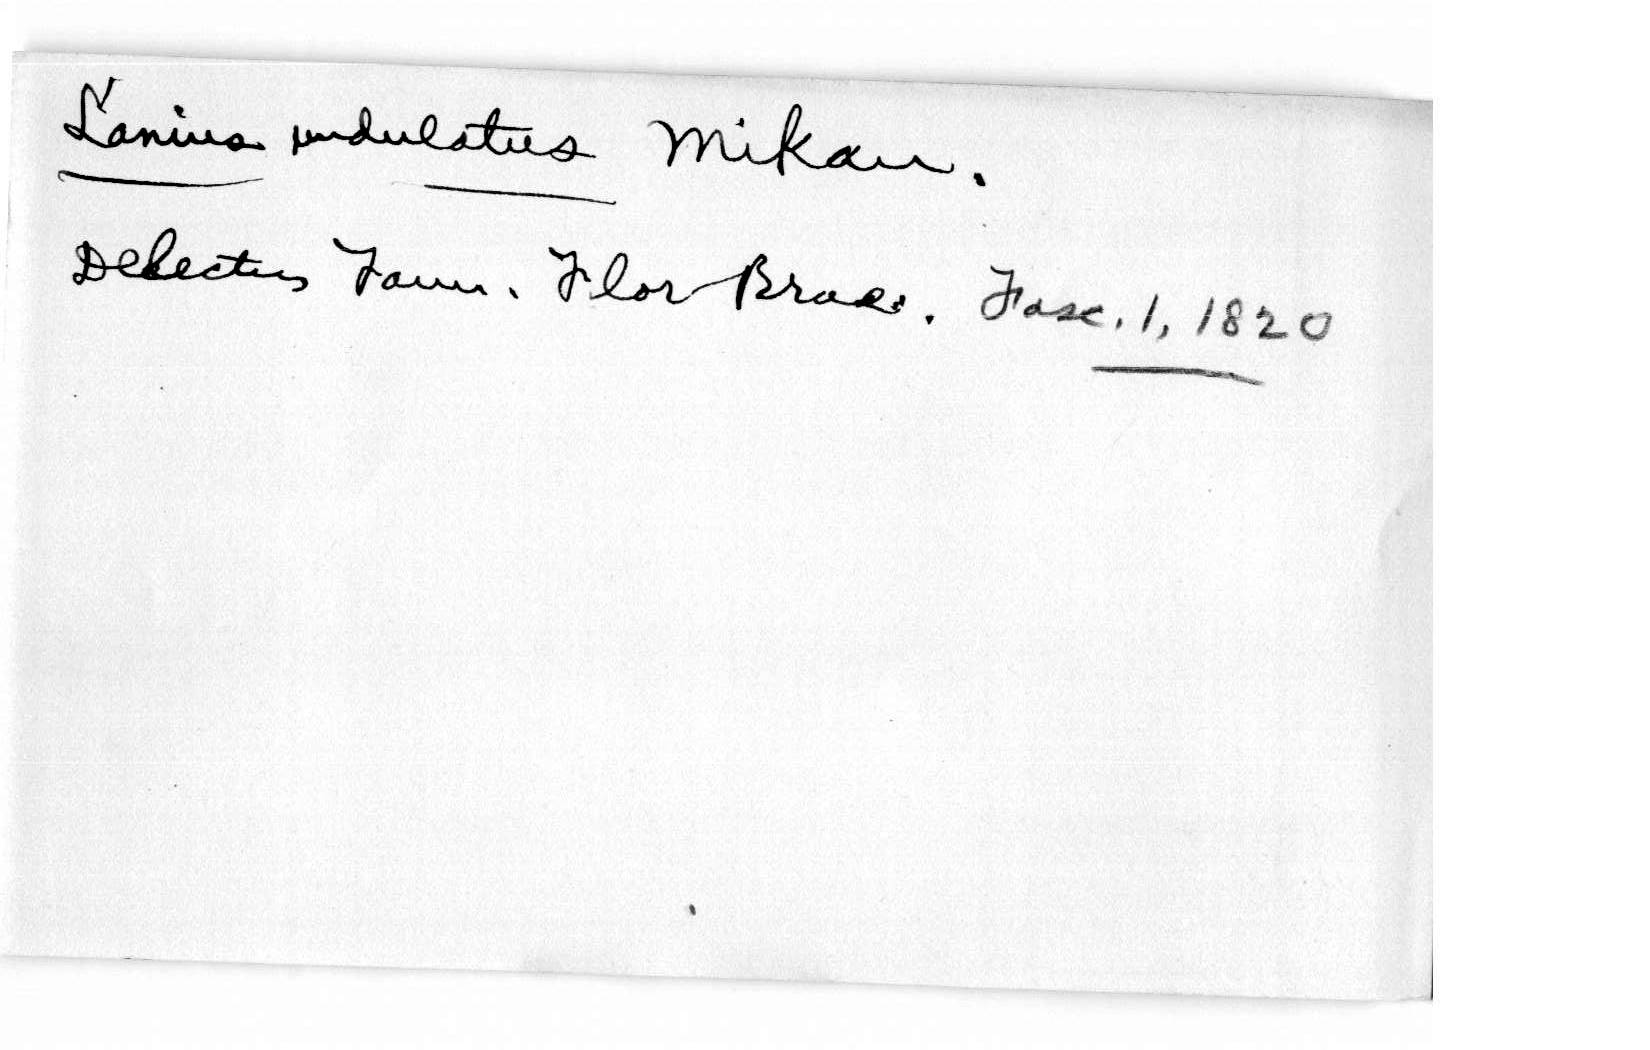 Lanius undulatus Mikan.
Delectus Faun. Flor Bras. Fasc. 1, 1820